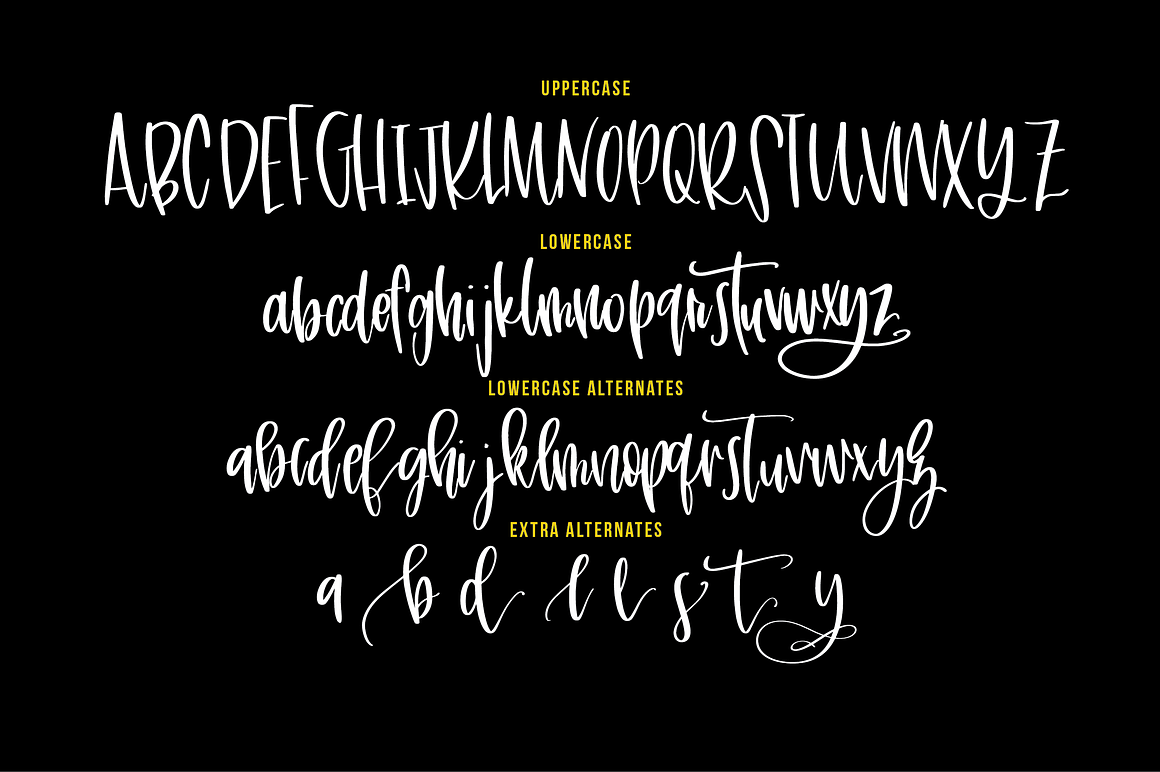 UPPERCASE
ABCDEFGHIJKLMNOPQRSTUVWXYZ
LOWERCASE
abcdefghijklmnopqrstuvwxyz
LOWERCASE ALTERNATES
abcdefghijklmnopqrstuvwxyz
EXTRA ALTERNATES
a b d l l s t y